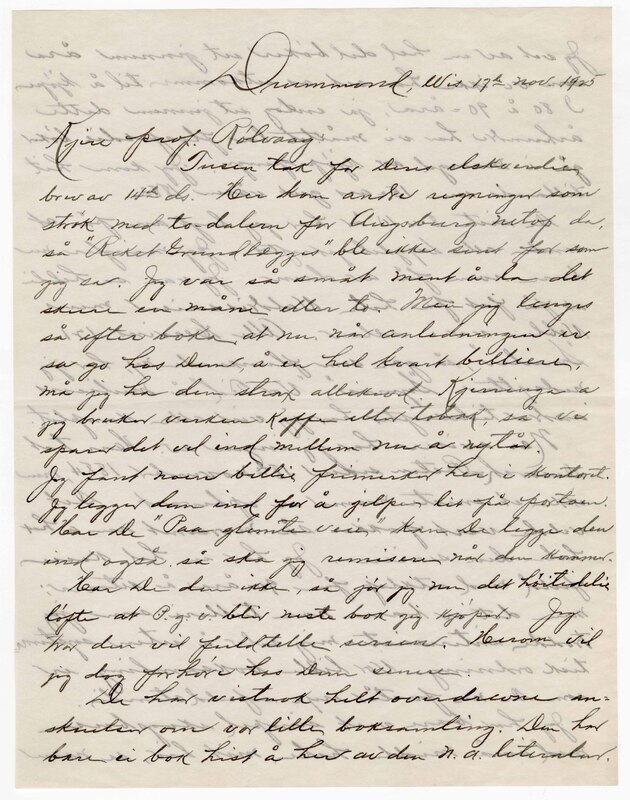 Drummond, Wis 17th nov. 1925
Kjire prof. Rølvaag
Tusen tak for Deres elskverdie
brev av 14th ds. Her kom andre regninger som
strøk med to dalern for Augsburg netop da,
så "Riket Grundlægges" ble ikke sent for som
jeg sa. Jeg var så småt ment å la det
skure en måne eller to. Men jeg lenges
så efter boka, at nu, når anledningen er
sa go hos Dem, å en hel kvart billiere,
må jeg ha den strax allikevel. Kjerringa a
jeg bruker verken kaffe eller tobak, så vi
sparer det vel ind mellem nu å nytår.
Jeg fant noen billie frimerker her i kontort.
Jeg legger dem ind for å jelpe lit på portoen.
Har De "Paa glemte veie" kan De legge den
ind også, så ska jeg remisere når den kommer.
Har De den ikke, så jør jeg nu det høitidelie
løfte at P. g. v. blir neste bok jeg kjøper. Jeg
tror den vil fuldtelle serien. Herom vil
jeg dog forhøre hos Dem senere.
De har vistnok helt overdrevne an-
skuelser om vor lille boksamling. Den har
bare ei bok hist å her av den n. a. literatur.